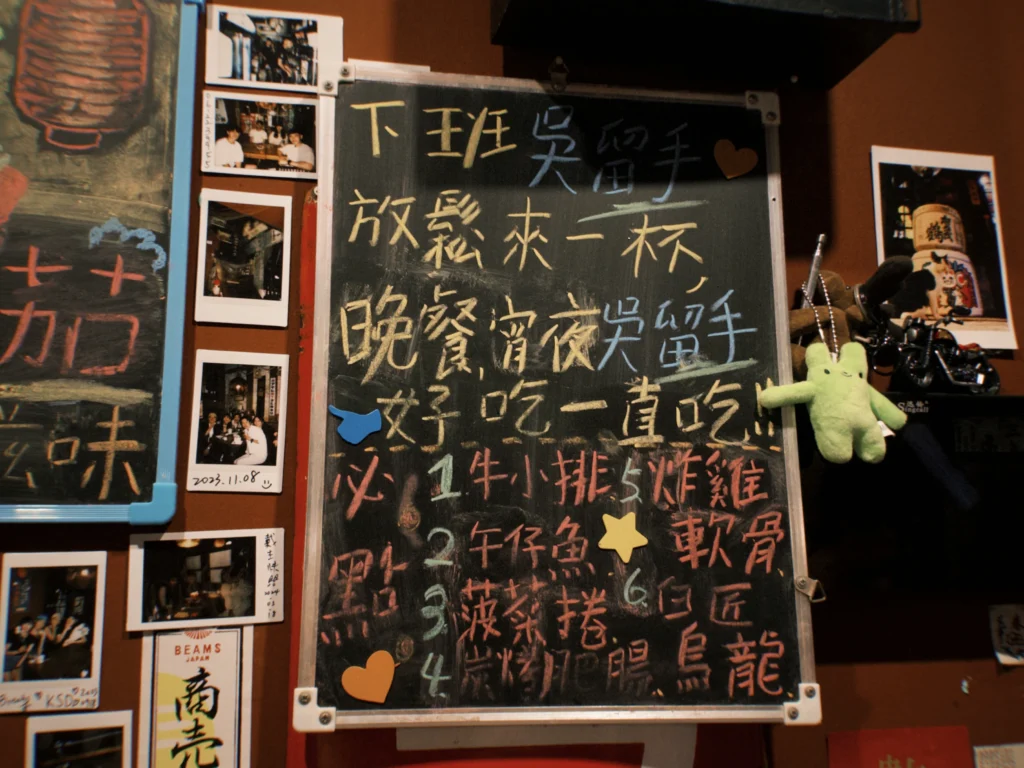 下班 吳留手
放鬆來一杯,
晚餐,宵夜吳留手
好吃一直吃!!
必點
1 牛小排
2 午仔魚
3 菠菜捲
4 炭烤肥腸
5. 炸雞軟骨
6 白匠烏龍
茄
滋味
2023.11.08
BEAMS
JAPAN
商売
KSD
鶴